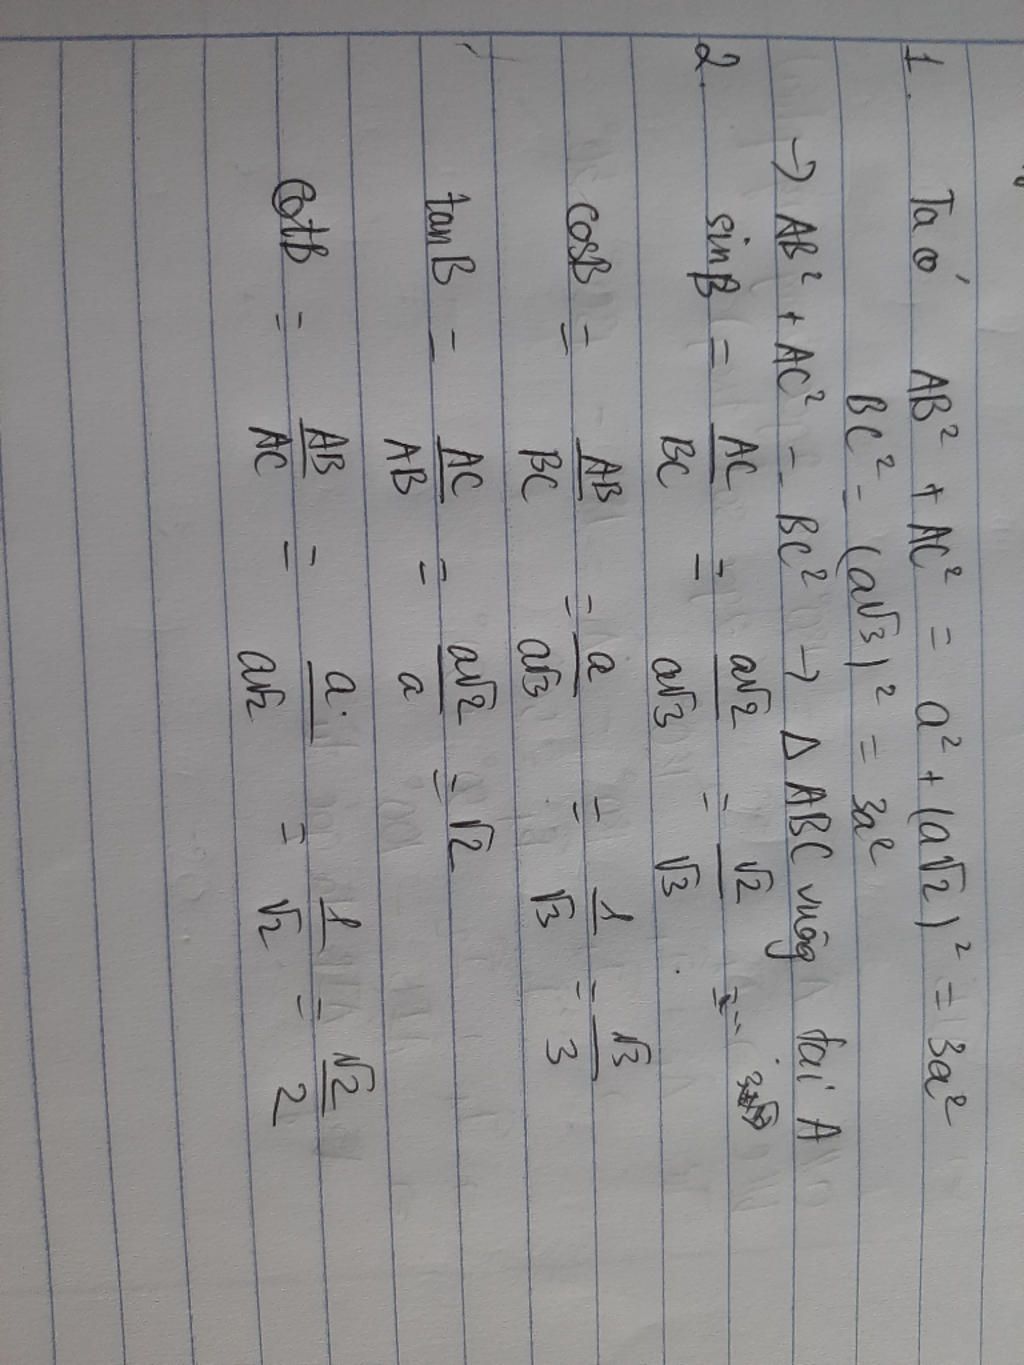 1. Ta có AB² + AC² = a² + (a√2)² = 3a²
BC² = (a√3)² = 3a²
→ AB² + AC² = BC² → Δ ABC vuông tại A
2. sinB = AC/BC = a√2/a√3 = √2/√3 =
cosB = AB/BC = a/a√3 = 1/√3 = √3/3
tanB = AC/AB = a√2/a = √2
cotB = AB/AC = a/a√2 = 1/√2 = √2/2